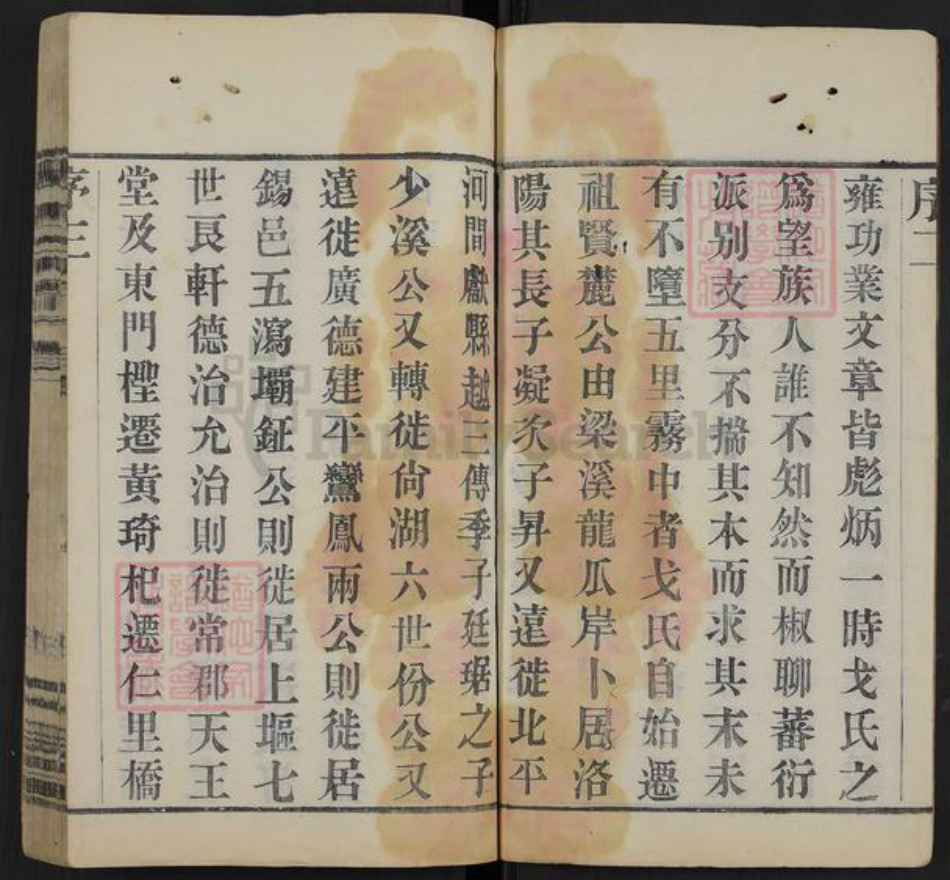 序二
雍功業文章皆彪炳一時戈氏之
爲望族人誰不知然而椒聊蕃衍
派别支分不揣其本而求其末未
有不墮五里霧中者戈氏自始遷
祖賢麓公由梁溪龍瓜岸卜居洛
陽其長子凝次子昇又遠徙北平
河間獻縣越三傳季子廷琚之子
少溪公又轉徙尙湖六世份公又
遠徙廣德建平鸞鳳兩公則徙居
錫邑五瀉壩鉦公則徙居上塸七
世艮軒德治允治則徙常郡天王
堂及東門檉遷黃琦杞遷仁里橋
序三
FamilySearch